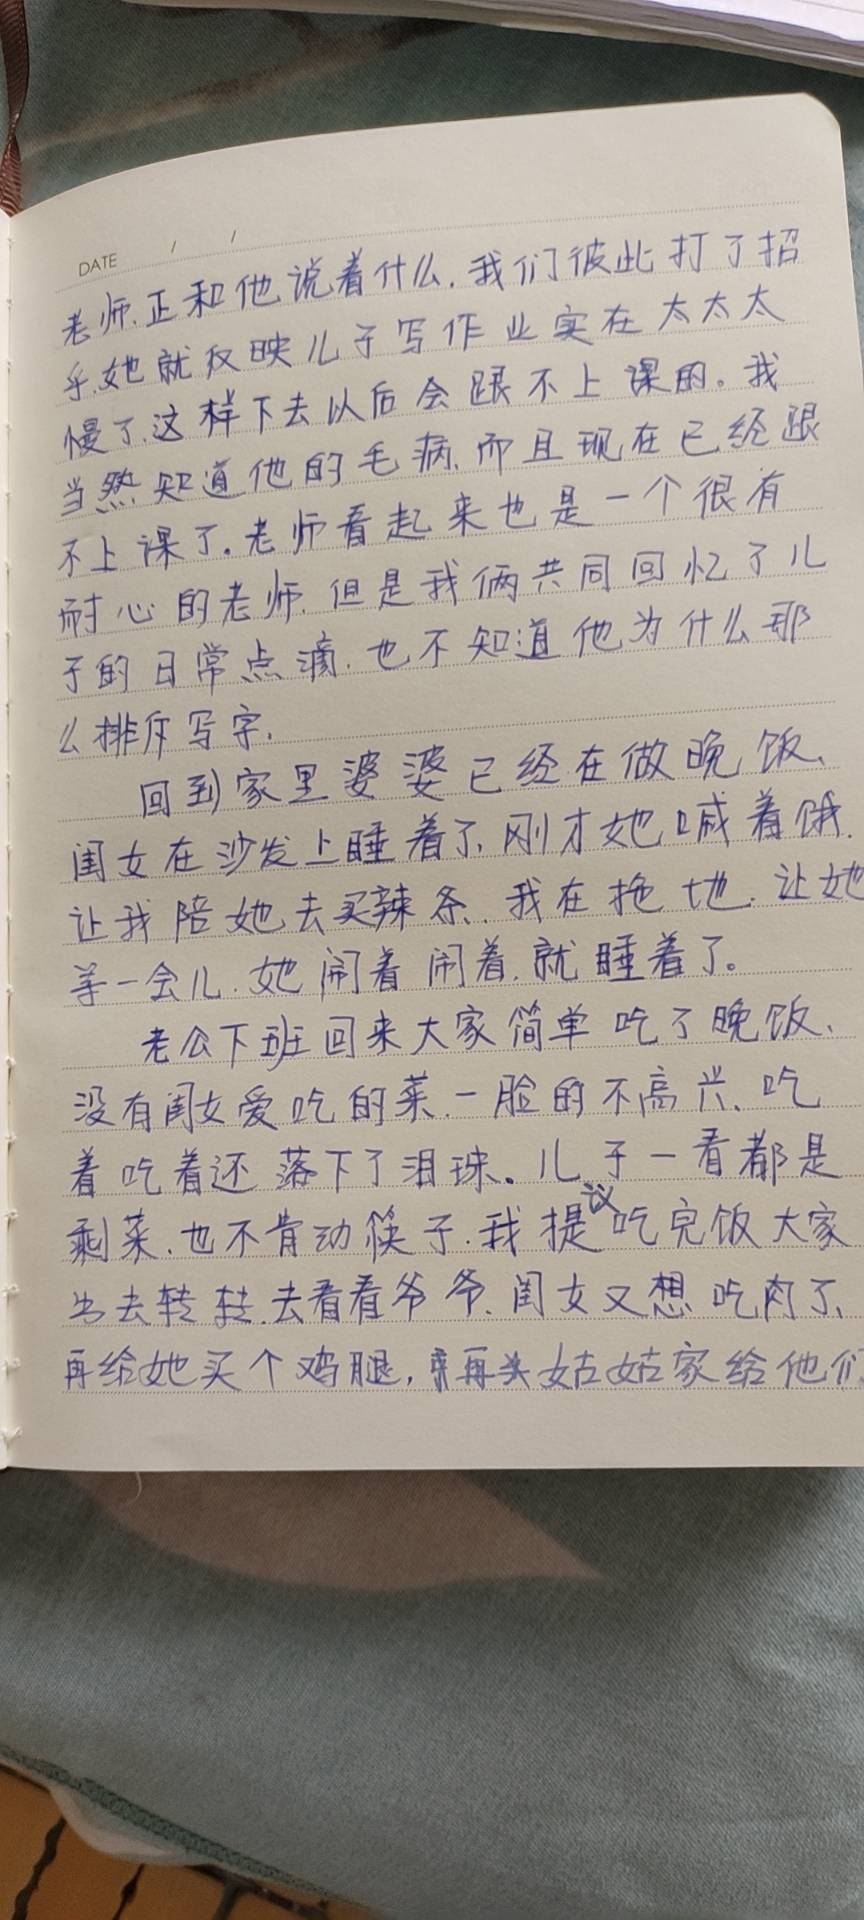 DATE / /
老师.正和他说着什么.我们彼此打了招
乎.她就反映儿子写作业实在太太太
慢了.这样下去以后会跟不上课的。我
当然知道他的毛病.而且现在已经跟
不上课了。老师看起来也是一个很有
耐心的老师.但是我俩共同回忆了儿
子的日常点滴.也不知道他为什么那
么排斥写字.
回到家里婆婆已经在做晚饭、
闺女在沙发上睡着了、刚才她喊着饿.
让我陪她去买辣条.我在拖地.让她
等一会儿.她闹着闹着.就睡着了。
老公下班回来大家简单吃了晚饭、
没有闺女爱吃的菜.一脸的不高兴、吃
着吃着还落下了泪珠。儿子一看都是
剩菜.也不肯动筷子.我提议吃完饭大家
出去转转.去看看爷爷.闺女又想吃肉了、
再给她买个鸡腿，再去姑姑家给他们